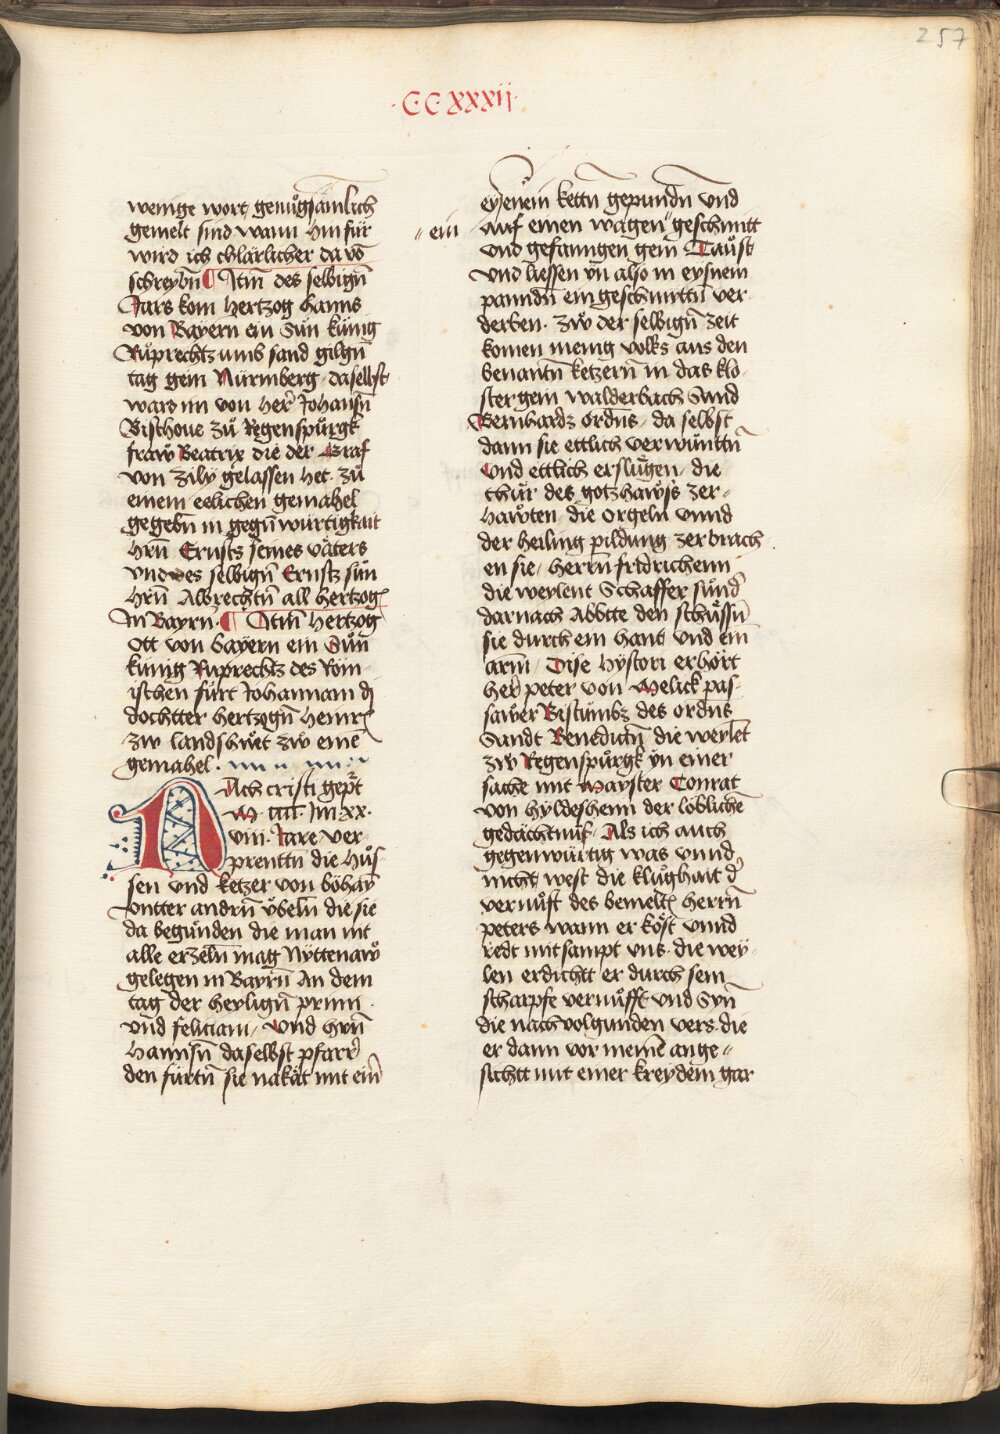 257
·CCxxxij·
wenige wort genůgsamlich
gemelt sind wann hin für
wird ich chlärlicher da võ
schreybñ ¶ Itm̃ des selbigñ
Jars kom hertzog hanns
von Bayern ein Sun künig
Ruprechtz umb sand gilgñ
tag gein Nürmberg · daselbst
ward im von her̃ Johansñ
Bischoue zů Regenspurgk
fraw Beatrix die der Graf
von Zily gelassen het · zů
einem eelichen gemahel
gegebñ in gegñwürtigkait
hrñ Ernsts seines väters
vnd des selbigñ Ernstz sun
hrñ Albrechtñ all hertzog
In Bayrñ · ¶ Itm̃ hertzog
Ott von bayern ein Sun
künig Ruprechtz des Röm-
ischen fürt Johannam d̕
dochtter hertzogñ heinr̃
zw landshůet zw eine
gemahel ·
NAch cristi gepr̃t
M · cccc · Jm xx ·
viii · Jare ver-
prenttñ die hus-
sen vnd ketzer von böhay̑
vntter andrñ übelñ die sie
da begunden die man nit
alle erzelñ mag Nyttenaw
gelegen in Bayrñ An dem
tag der heyligñ primi ·
vnd feliciani / vnd hrñ
Hannsñ daselbst pfarr̃
den fürtñ sie nakät mit ein̄
eysenein kettñ gepundñ vnd
" ein auf einen wagen " geschmitt
vnd gefanngen gein Taust
vnd liessen yn also in eysnein
panndñ ein geschmittñ ver-
derben · zw der selbigñ zeit
komen menig volks aus den
benantñ ketzern in das klo-
ster gein walderbach Sand
Bernhardz ordñs / da selbst
dann sie ettlich verwunttñ
vnd ettlich erslugen / die
thür des gotzhawss zer-
hawten die orgeln vnnd
der heiling pildung zerbrach
en sie / herrñ fridrichenn
die weylent Schaffer sund̃
darnach Abbte den schussñ
sie durch ein hant vnd ein
arm̃ / Dise hystori erhört
her̃ peter von Melick pas-
sawer Bistumbz des ordñs
Sandt Benedictñ die weylet
zw Regenspurgk yn einer
sache mit Mayster Conrat
von hyldesheim der löbliche
gedächtnuss · Als ich auch
gegenwürtig was vnnd
nicht west die klughait d̕
vernuft des bemeltñ herrñ
peters wann er kost vnnd
redt mitsampt vns · die wey-
len erdichtt er durch sein
scharpfe vernufft vnd Syñ
die nachvolgunden vers · die
er dann vor meine ange-
sichtt mit einer kreydem gar